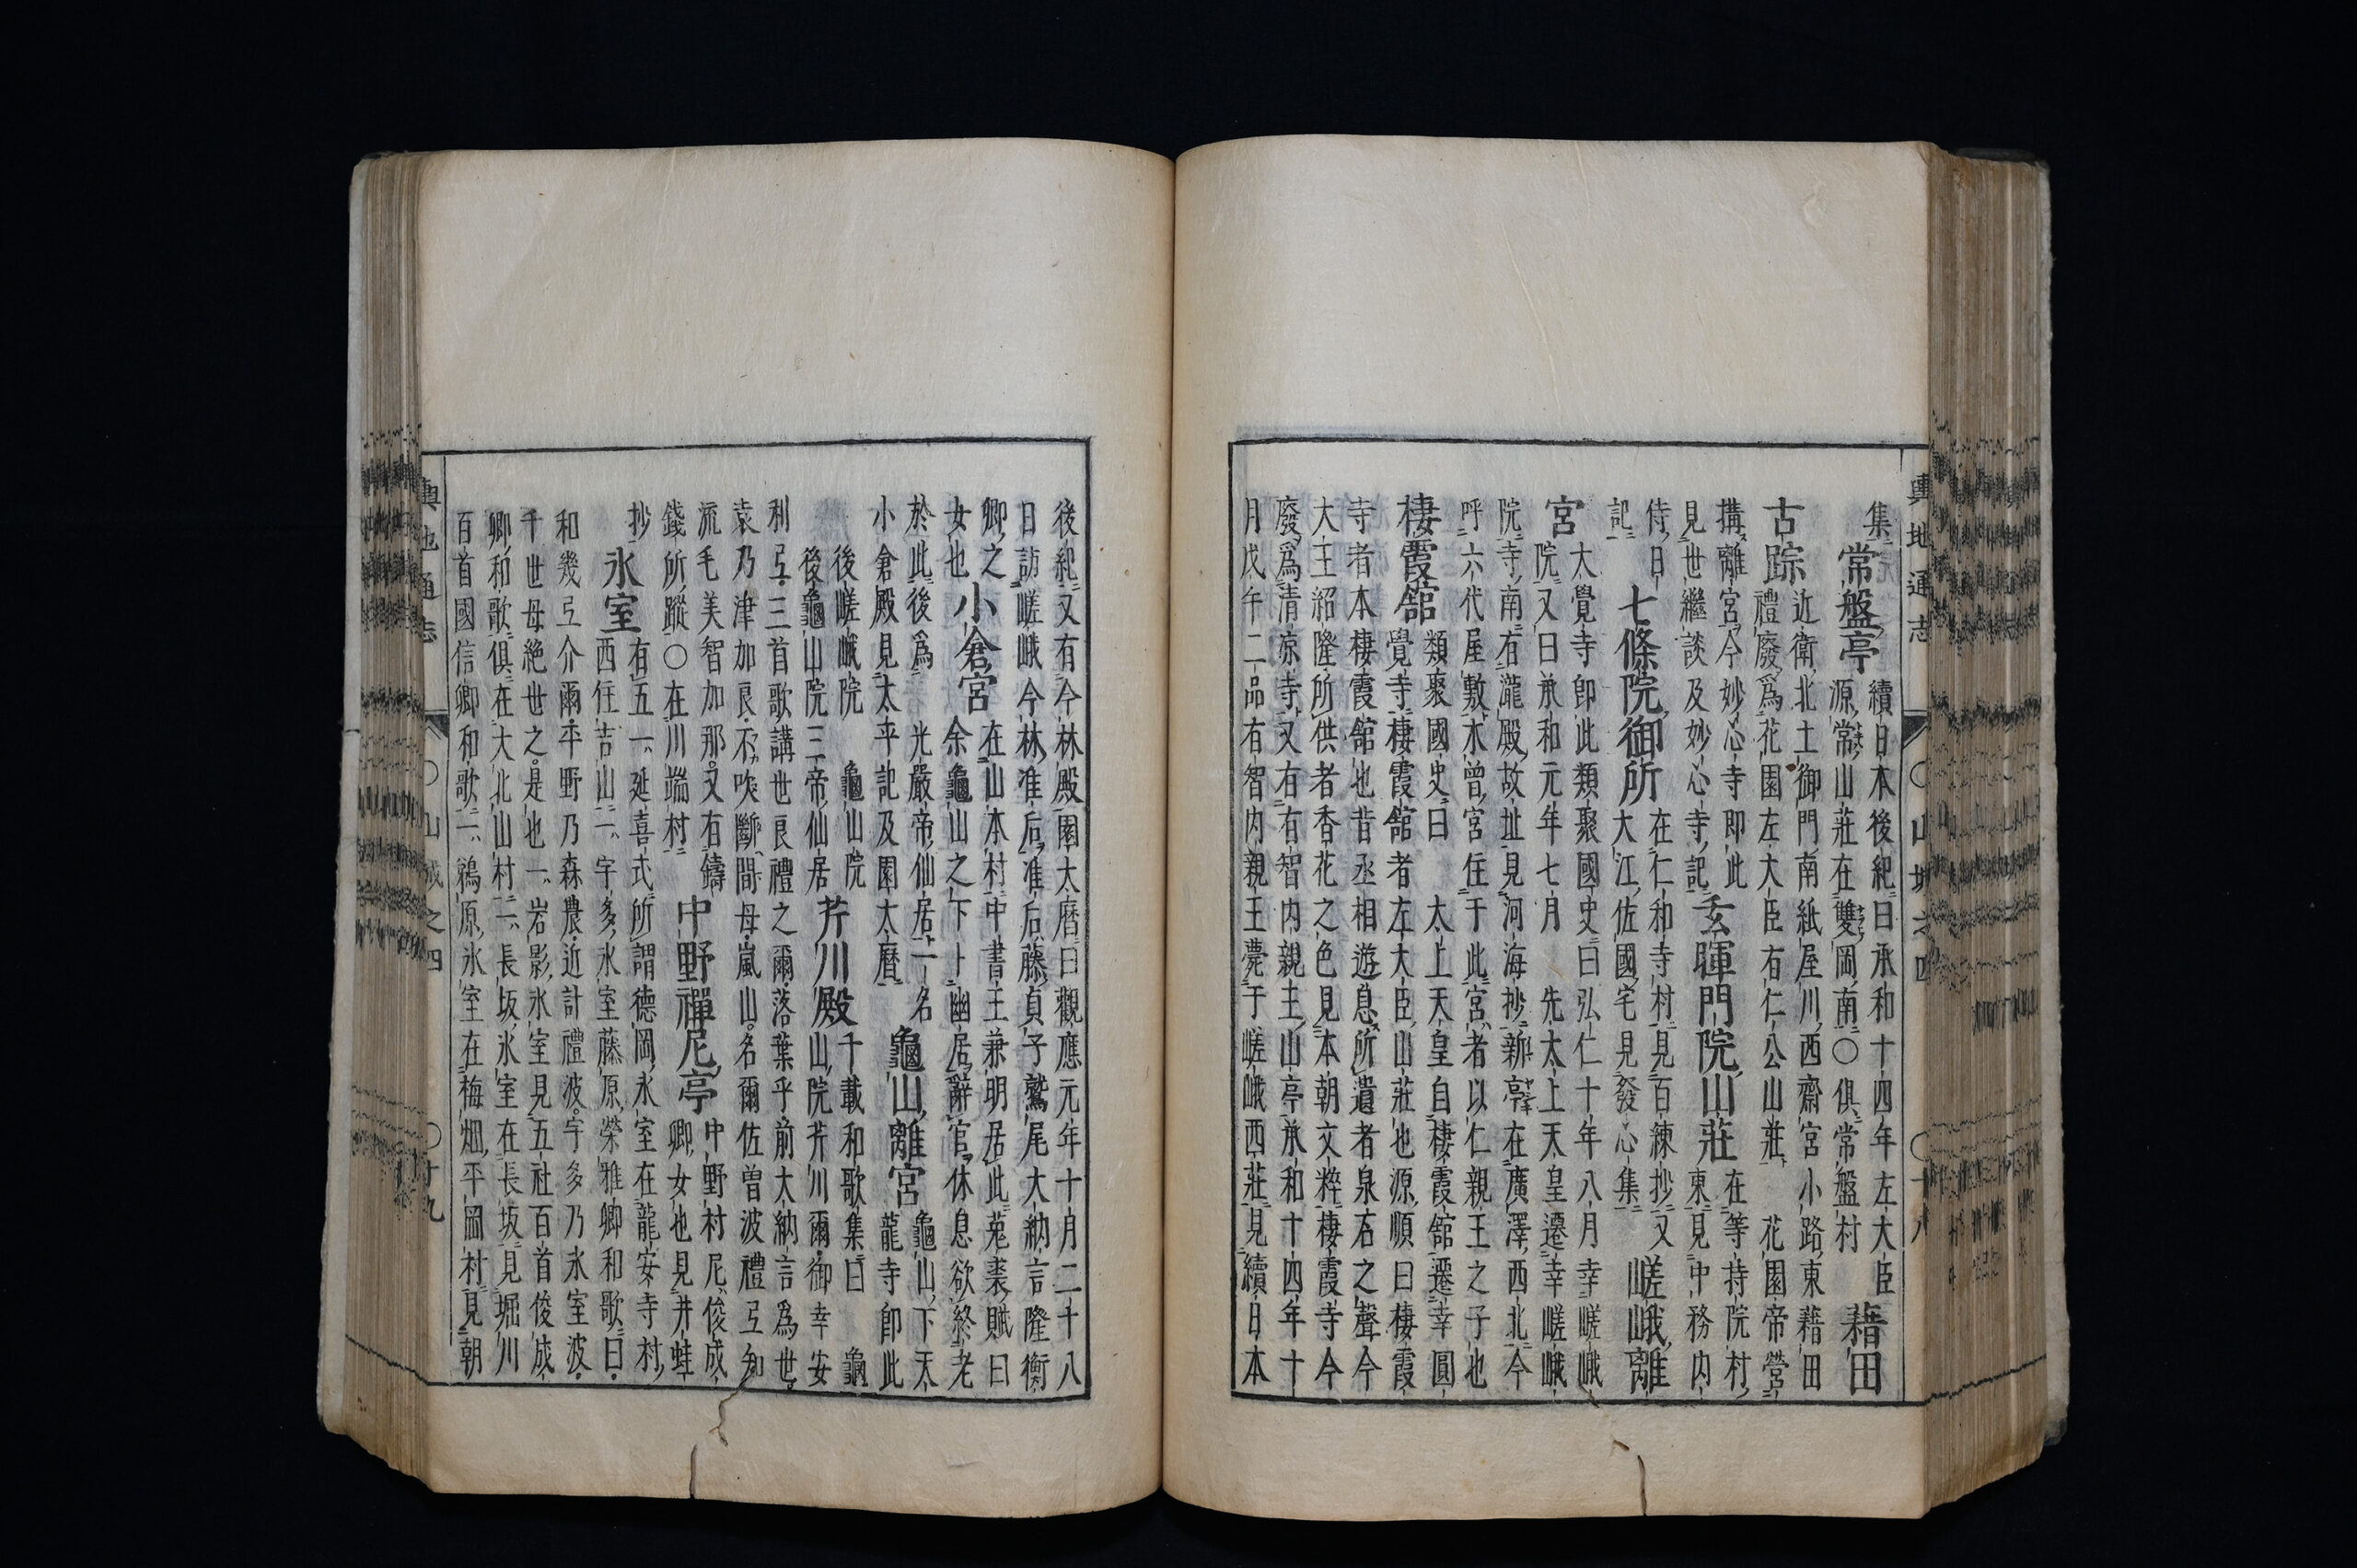 輿地通志 ○山城之四 ○十八
集
常盤亭
續日本後紀曰承和十四年左大臣
源常山莊在雙岡南○俱常盤村
藉田
古踪
近衛北土御門南紙屋川西齋宮小路東藉田
禮廢爲花園左大臣有仁公山莊 花園帝營
搆離宮今妙心寺即此
見世繼談及妙心寺記
玄暉門院山莊
在等持院村
東見中務内
侍日
記
七條院御所
在仁和寺村見百練抄又
大江佐國宅見發心集
嵯峨離
宮
大覺寺即此類聚國史曰弘仁十年八月幸嵯峨
院又曰承和元年七月 先太上天皇遷幸嵯峨
院寺南右瀧殿故址見河海抄新亭在廣澤西北今
呼六代屋敷木曾宮住于此宮者以仁親王之子也
棲霞舘
類聚國史曰 太上天皇自棲霞舘遷幸圓
覺寺棲霞舘者左大臣山莊也源順曰棲霞
寺者本棲霞舘也昔丞相遊息所遺者泉石之聲今
大王紹隆所供者香花之色見本朝文粹棲霞寺今
廢爲清凉寺又有有智内親王山亭承和十四年十
月戊午二品有智内親王薨于嵯峨西莊見續日本
後紀又有今林殿園太曆曰觀應元年十月二十八
日訪嵯峨今林准后准后藤貞子鷲尾大納言隆衡
卿之
女也
小倉宮
在山本村中書王兼明居此菟裘賦曰
余龜山之下卜幽居辭官休息欲終老
於此後爲 光嚴帝仙居一名
小倉殿見太平記及園太曆
龜山離宮
龜山下天
龍寺即此
後嵯峨院 龜山院
後龜山院三帝仙居
芹川殿
千載和歌集曰 龜
山院芹川爾御幸安
利弖三首歌講世良禮之爾落葉乎前太納言爲世
袁乃津加良不吹斷間母嵐山名爾佐曽波禮弖知
流毛美智加那又右鑄
錢所蹤○在川端村
中野禪尼亭
中野村尼俊成
卿女也見井蛙
抄
氷室
有五一延喜式所謂德岡氷室在龍安寺村
西住吉山二宇多氷室藤原榮雅卿和歌曰
和幾弖介爾平野乃森農近計禮波宇多乃氷室波
千世母絶世之是也一岩影氷室見五社百首俊成
卿和歌俱在大北山村二長坂氷室在長坂見堀川
百首國信卿和歌二鵜原氷室在梅畑平岡村見朝
輿地通志 ○山城之四 ○廿九